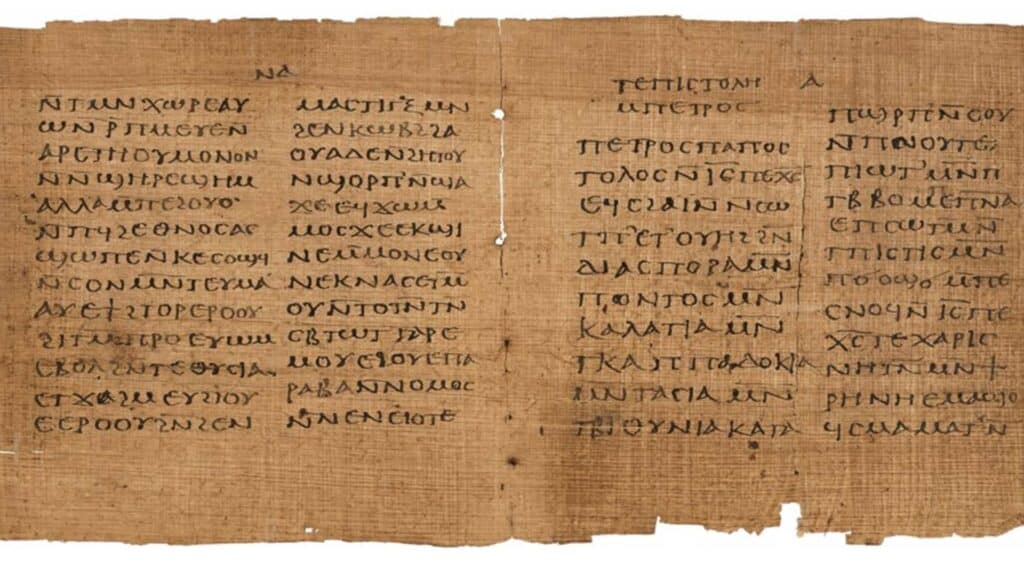 ⲛⲁ
ⲛ̄ⲧⲙⲛⲭⲱⲣⲉⲁⲩ
ⲱⲛⲣ̄ⲡⲙⲉⲩⲉⲛ
ⲁⲣⲉⲧⲏⲟⲩⲙⲟⲛⲟⲛ
ⲛ̄ⲛϣⲏⲣⲉϣⲏⲙ
ⲁⲗⲗⲁⲙⲡⲉϩⲟⲩⲟ
ⲛ̄ⲡϥϩⲉⲑⲛⲟⲥⲁⲥ
ϣⲱⲡⲉⲛⲕⲉⲥⲟⲡϥ
ⲛ̄ⲥⲟⲛⲙⲛⲧⲉⲩⲙⲁ
ⲁⲩⲉϯϩⲧⲟⲣⲉⲣⲟⲟⲩ
ϩⲓⲧⲙ̄ⲡⲣⲟⲉⲩⲱⲙ
ⲉⲃⲟⲗϩⲛⲧⲉⲑⲩⲥⲓⲁ
ⲉⲧϫⲁϩⲙⲉⲩϩⲓⲟⲩ
ⲉⲉⲣⲟⲟⲩϩⲛϩⲉⲛ
ⲙⲁⲥⲧⲓⲅⲝⲙⲛ
ϩⲉⲛⲕⲱⲃϩϩⲁ
ⲟⲩⲁⲇⲉⲛϩⲏⲧⲟⲩ
ⲛϣⲟⲣⲡ̄ⲛ̄ϣⲁ
ϫⲉⲉϥϫⲱⲙ̄
ⲙⲟⲥϫⲉⲉⲕϣⲓ
ⲛⲉⲙ̄ⲙⲟⲛⲉⲟⲩ
ⲛⲉⲕⲛⲁⲥⲉⲧⲙ̄
ⲟⲩⲛ̄ⲧⲟⲧⲛ̄ⲧⲛ
ⲥⲃⲧⲱⲧⲅⲁⲣⲉ
ⲙⲟⲩⲉϩⲟⲩⲉⲡⲁ
ⲣⲁⲃⲁⲛⲛⲟⲙⲟⲥ
ⲛ̄ⲛⲉⲛⲉⲓⲟⲧⲉ
ⲧⲉⲡⲓⲥⲧⲟⲗⲏ ⲁ
ⲙⲡⲉⲧⲣⲟⲥ
ⲡⲉⲧⲣⲟⲥⲡⲁⲡⲟⲥ
ⲧⲟⲗⲟⲥⲛ̄ⲓ̄ⲥ̄ⲡⲉⲭⲥ̄
ⲉϥⲥϩⲁⲓⲛ̄ⲛⲥⲱ
ⲧⲡ̄ⲉⲧⲟⲩⲏϩϩⲛ̄
ⲇⲓⲁⲥⲡⲟⲣⲁⲙ̄ⲛ̄
ⲡⲟⲛⲧⲟⲥⲙ̄ⲛ
ⲕⲁⲗⲁⲧⲓⲁⲙ̄ⲛ
ⲧⲕⲁⲡⲡⲁⲇⲟⲕⲓⲁ
ⲙⲛⲧⲁⲥⲓⲁⲙⲛ
ⲧⲃⲓⲑⲩⲛⲓⲁⲕⲁⲧⲁ
ⲡϣⲣⲡ̄ⲛ̄ⲥⲟⲩ
ⲛ̄ⲡⲛⲟⲩⲧⲉ
ⲡⲓⲱⲧⲙⲛ̄ⲡ
ⲧⲃⲃⲟⲙⲡⲉⲡⲛⲁ
ⲉⲡⲥⲱⲧⲙⲛ
ⲧⲡⲓⲥⲧⲓⲥⲙ̄ⲛ
ⲡϭⲟϣϭϣⲙ̄ⲡⲉ
ⲥⲛⲟϥⲛ̄ⲓ̄ⲥ̄ⲡⲉ
ⲭ̄ⲥ̄ⲧⲉⲭⲁⲣⲓⲥ
ⲛⲏⲧⲛ̄ⲙⲛϯ
ⲣⲏⲛⲏⲉⲙⲁϣⲟ
ϥⲥⲙⲁⲙⲁⲧⲛ